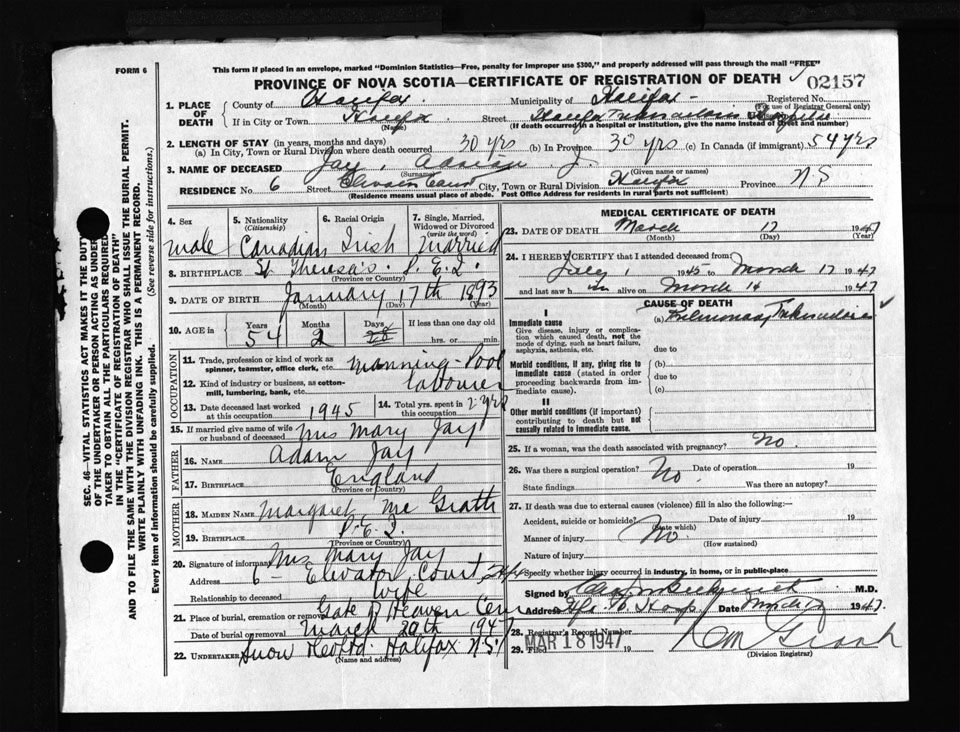 FORM 6
This form if placed in an envelope, marked "Dominion Statistics—Free, penalty for improper use $300," and properly addressed will pass through the mail "FREE"
PROVINCE OF NOVA SCOTIA—CERTIFICATE OF REGISTRATION OF DEATH
02157
1. PLACE OF DEATH
County of Halifax Municipality of Halifax Registered No.
(For use of Registrar General only)
If in City or Town Halifax Street Halifax Tuberculosis Hospital
(Name) (If death occurred in a hospital or institution, give the name instead of street and number)
2. LENGTH OF STAY (in years, months and days)
(a) In City, Town or Rural Division where death occurred 30 yrs (b) In Province 30 yrs (c) In Canada (if immigrant) 54 yrs
3. NAME OF DECEASED Jay, Adrian J.
(Surname) (Given name or names)
RESIDENCE No. 6 Street Elevator Court City, Town or Rural Division Halifax Province N.S
(Residence means usual place of abode. Post Office Address for residents in rural parts not sufficient)
4. Sex 5. Nationality (Citizenship) 6. Racial Origin 7. Single, Married, Widowed or Divorced (write the word)
male Canadian Irish married
8. BIRTHPLACE St Theresa's P.E.I.
(Province or Country)
9. DATE OF BIRTH January 17th 1893
(Month) (Day) (Year)
10. AGE in Years Months Days If less than one day old
54 2 hrs. or min.
OCCUPATION
11. Trade, profession or kind of work as spinner, teamster, office clerk, etc. manning-Pool
12. Kind of industry or business, as cotton-mill, lumbering, bank, etc. labourer
13. Date deceased last worked at this occupation 1945 14. Total yrs. spent in this occupation 2 yrs
15. If married give name of wife or husband of deceased Mrs Mary Jay
FATHER
16. NAME Adam Jay
17. BIRTHPLACE England
(Province or Country)
MOTHER
18. MAIDEN NAME Margaret Mc Grath
19. BIRTHPLACE P.E.I
(Province or Country)
20. Signature of informant Mrs Mary Jay
Address 6 - Elevator Court Hfx
Relationship to deceased Wife
21. Place of burial, cremation or removal Gate of Heaven Cem
Date of burial or removal March 20th 1947
22. UNDERTAKER Snow Halifax N.S.
(Name and address)
MEDICAL CERTIFICATE OF DEATH
23. DATE OF DEATH March 17 1947
(Month) (Day) (Year)
24. I HEREBY CERTIFY that I attended deceased from
July 1 1945 to March 17 1947
and last saw him alive on March 14 1947
CAUSE OF DEATH
I
Immediate cause (a) Pulmonary Tuberculosis
Give disease, injury or complication which caused death, not the mode of dying, such as heart failure, asphyxia, asthenia, etc.
due to
Morbid conditions, if any, giving rise to immediate cause (stated in order proceeding backwards from immediate cause). (b)
due to
(c)
II
Other morbid conditions (if important) contributing to death but not causally related to immediate cause.
25. If a woman, was the death associated with pregnancy? No.
26. Was there a surgical operation? No. Date of operation 19
State findings Was there an autopsy?
27. If death was due to external causes (violence) fill in also the following:
Accident, suicide or homicide? Date of injury 19
(State which)
Manner of injury No.
(How sustained)
Nature of injury
Specify whether injury occurred in industry, in home, or in public-place
Signed by M.D.
Address Date March 17 1947
28. Registrar's Record Number
29. Filed MAR 18 1947 19
(Division Registrar)
SEC. 46—VITAL STATISTICS ACT MAKES IT THE DUTY OF THE UNDERTAKER OR PERSON ACTING AS UNDERTAKER TO OBTAIN ALL THE PARTICULARS REQUIRED IN THE "CERTIFICATE OF REGISTRATION OF DEATH" AND TO FILE THE SAME WITH THE DIVISION REGISTRAR WHO SHALL ISSUE THE BURIAL PERMIT.
WRITE PLAINLY WITH UNFADING INK. THIS IS A PERMANENT RECORD.
Every item of information should be carefully supplied. (See reverse side for instructions.)